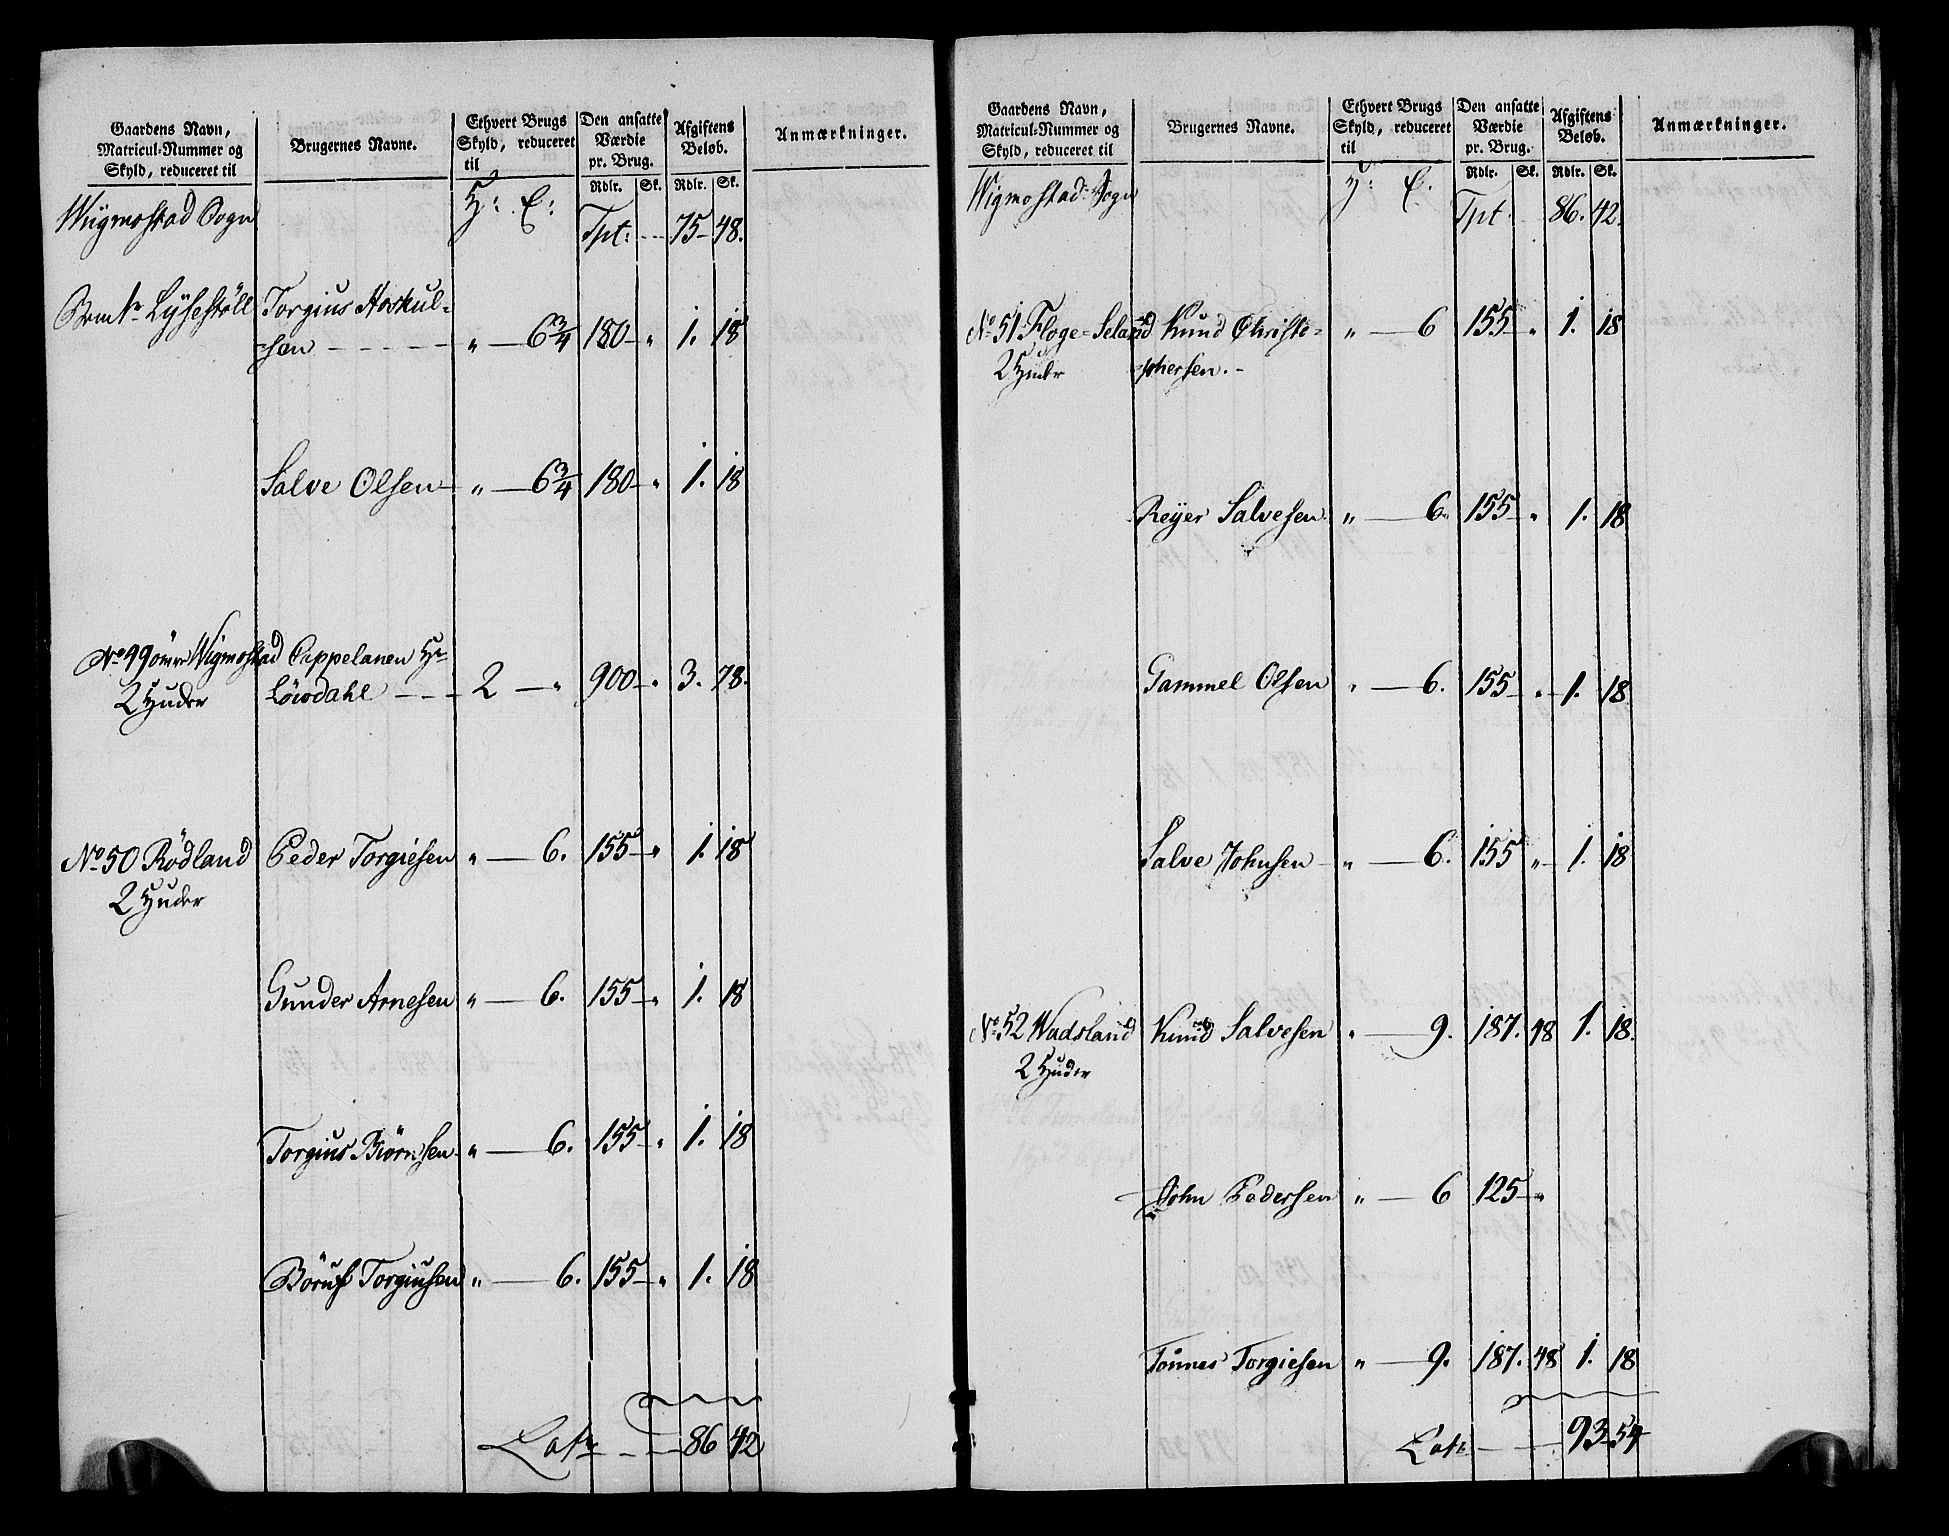 Gaardens Navn,
Matricul-Nummer og
Skyld, reduceret til
Brugernes Navne.
Ethvert Brugs
Skyld, reduceret
til
Den ansatte
Værdie
pr. Brug.
Afgiftens
Beløb.
Anmærkninger.
Rdlr. Sk. Rdlr. Sk.
Wiigmostad Sogn H: E: Tpt: 75 48.
Lÿsestöll Torgius Aoskul=
=sen " 6 3/4 180 " 1. 18
Salve Olsen " 6 3/4 180 " 1. 18
No 49 övre Wigmostad Cappelanen Hr
2 Huder Löwdahl 2 " 900 " 3. 78.
No 50 Rödland Peder Torgiesen " 6. 155 " 1. 18
2 Huder
Gunder Arnesen " 6. 155 " 1. 18
Torgius Biörnsen " 6. 155 " 1. 18
Böruf Torgiusen " 6. 155 " 1. 18
Lats 86 42
Gaardens Navn,
Matricul-Nummer og
Skyld, reduceret til
Brugernes Navne.
Ethvert Brugs
Skyld, reduceret
til
Den ansatte
Værdie
pr. Brug.
Afgiftens
Beløb.
Anmærkninger.
Rdlr. Sk. Rdlr. Sk.
Wigmostad Sogn H: E. Tpt. 86. 42.
No 51 Floge=Seland Knud Christo= " 6 155 " 1. 18
2 Huder =phersen.
Reÿer Salvesen " 6. 155 " 1. 18
Gammel Olsen " 6. 155 " 1. 18
Salve Johnsen " 6. 155 " 1. 18
No 52 Wadsland Knud Salvesen " 9. 187. 48 1. 18.
2 Huder
John Pedersen " 6 125 "
Tönnes Torgiesen " 9. 187. 48 1. 18
Lats 93 54